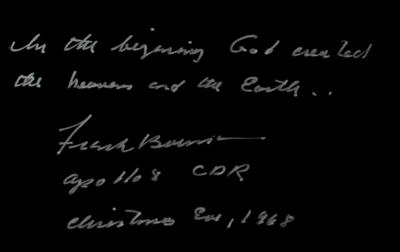 In the beginning God created
the heavens and the Earth..
Frank Borman
Apollo 8 CDR
Christmas Eve, 1968